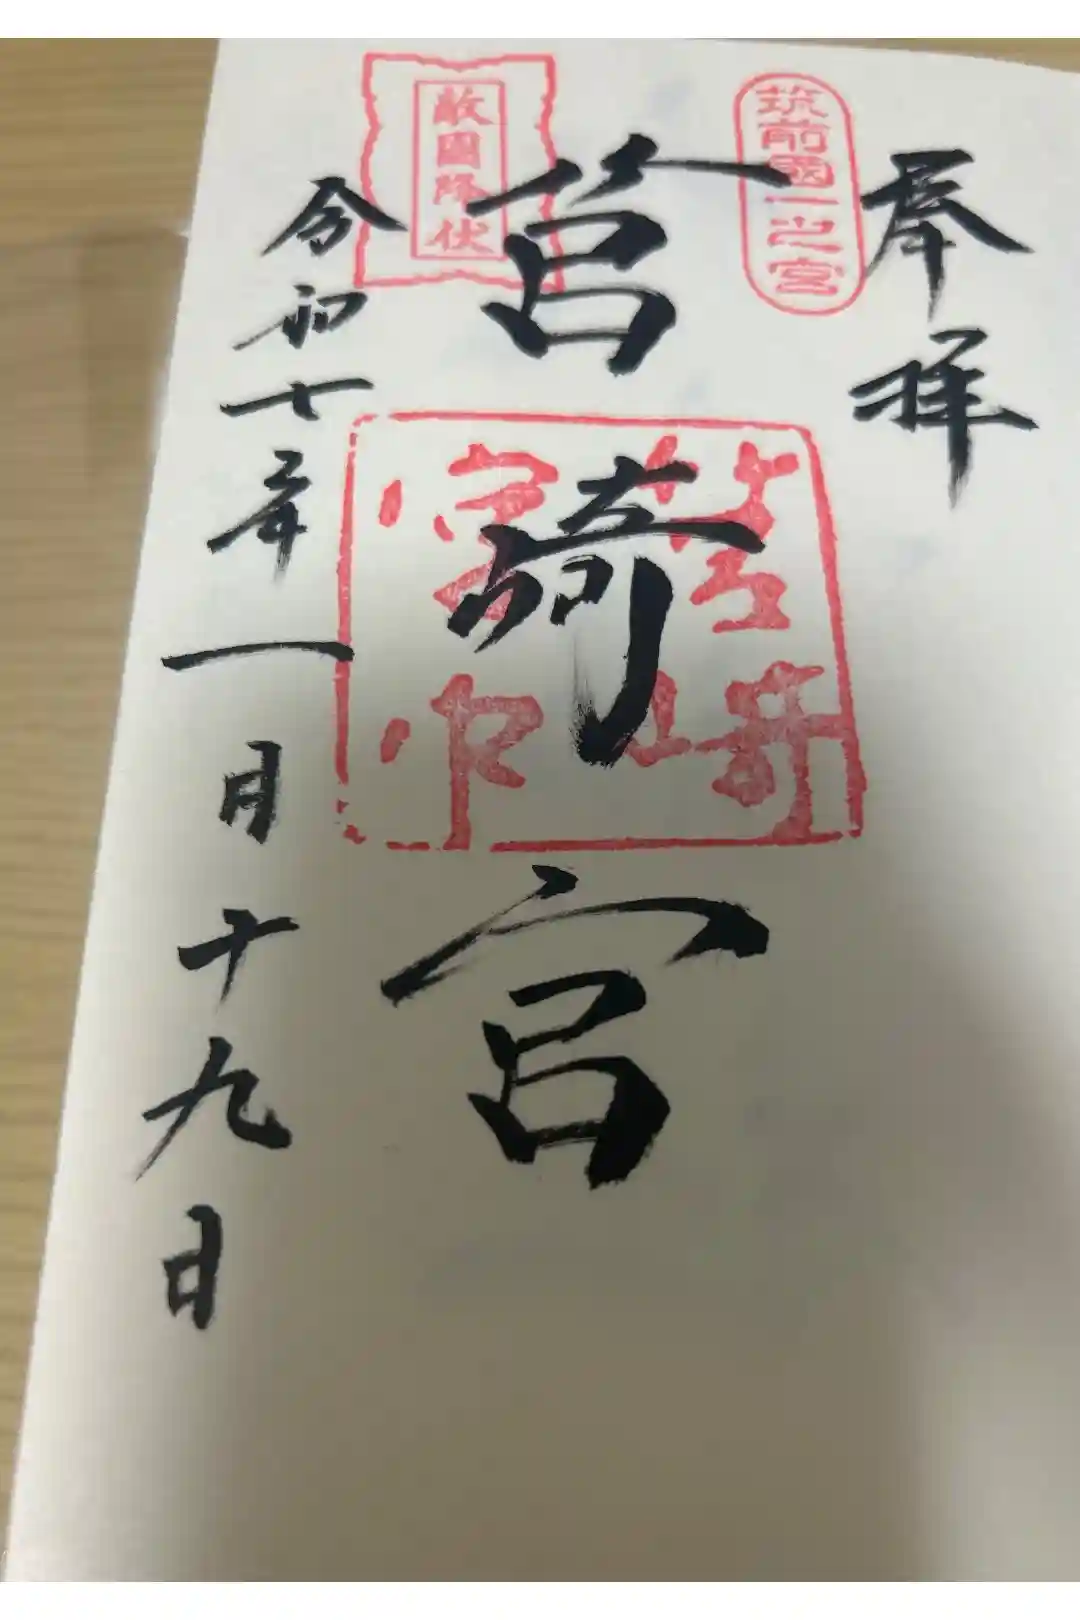 奉拝
筑前國一之宮
筥崎宮
筥崎
宮印
敵國降伏
令和七年一月十九日